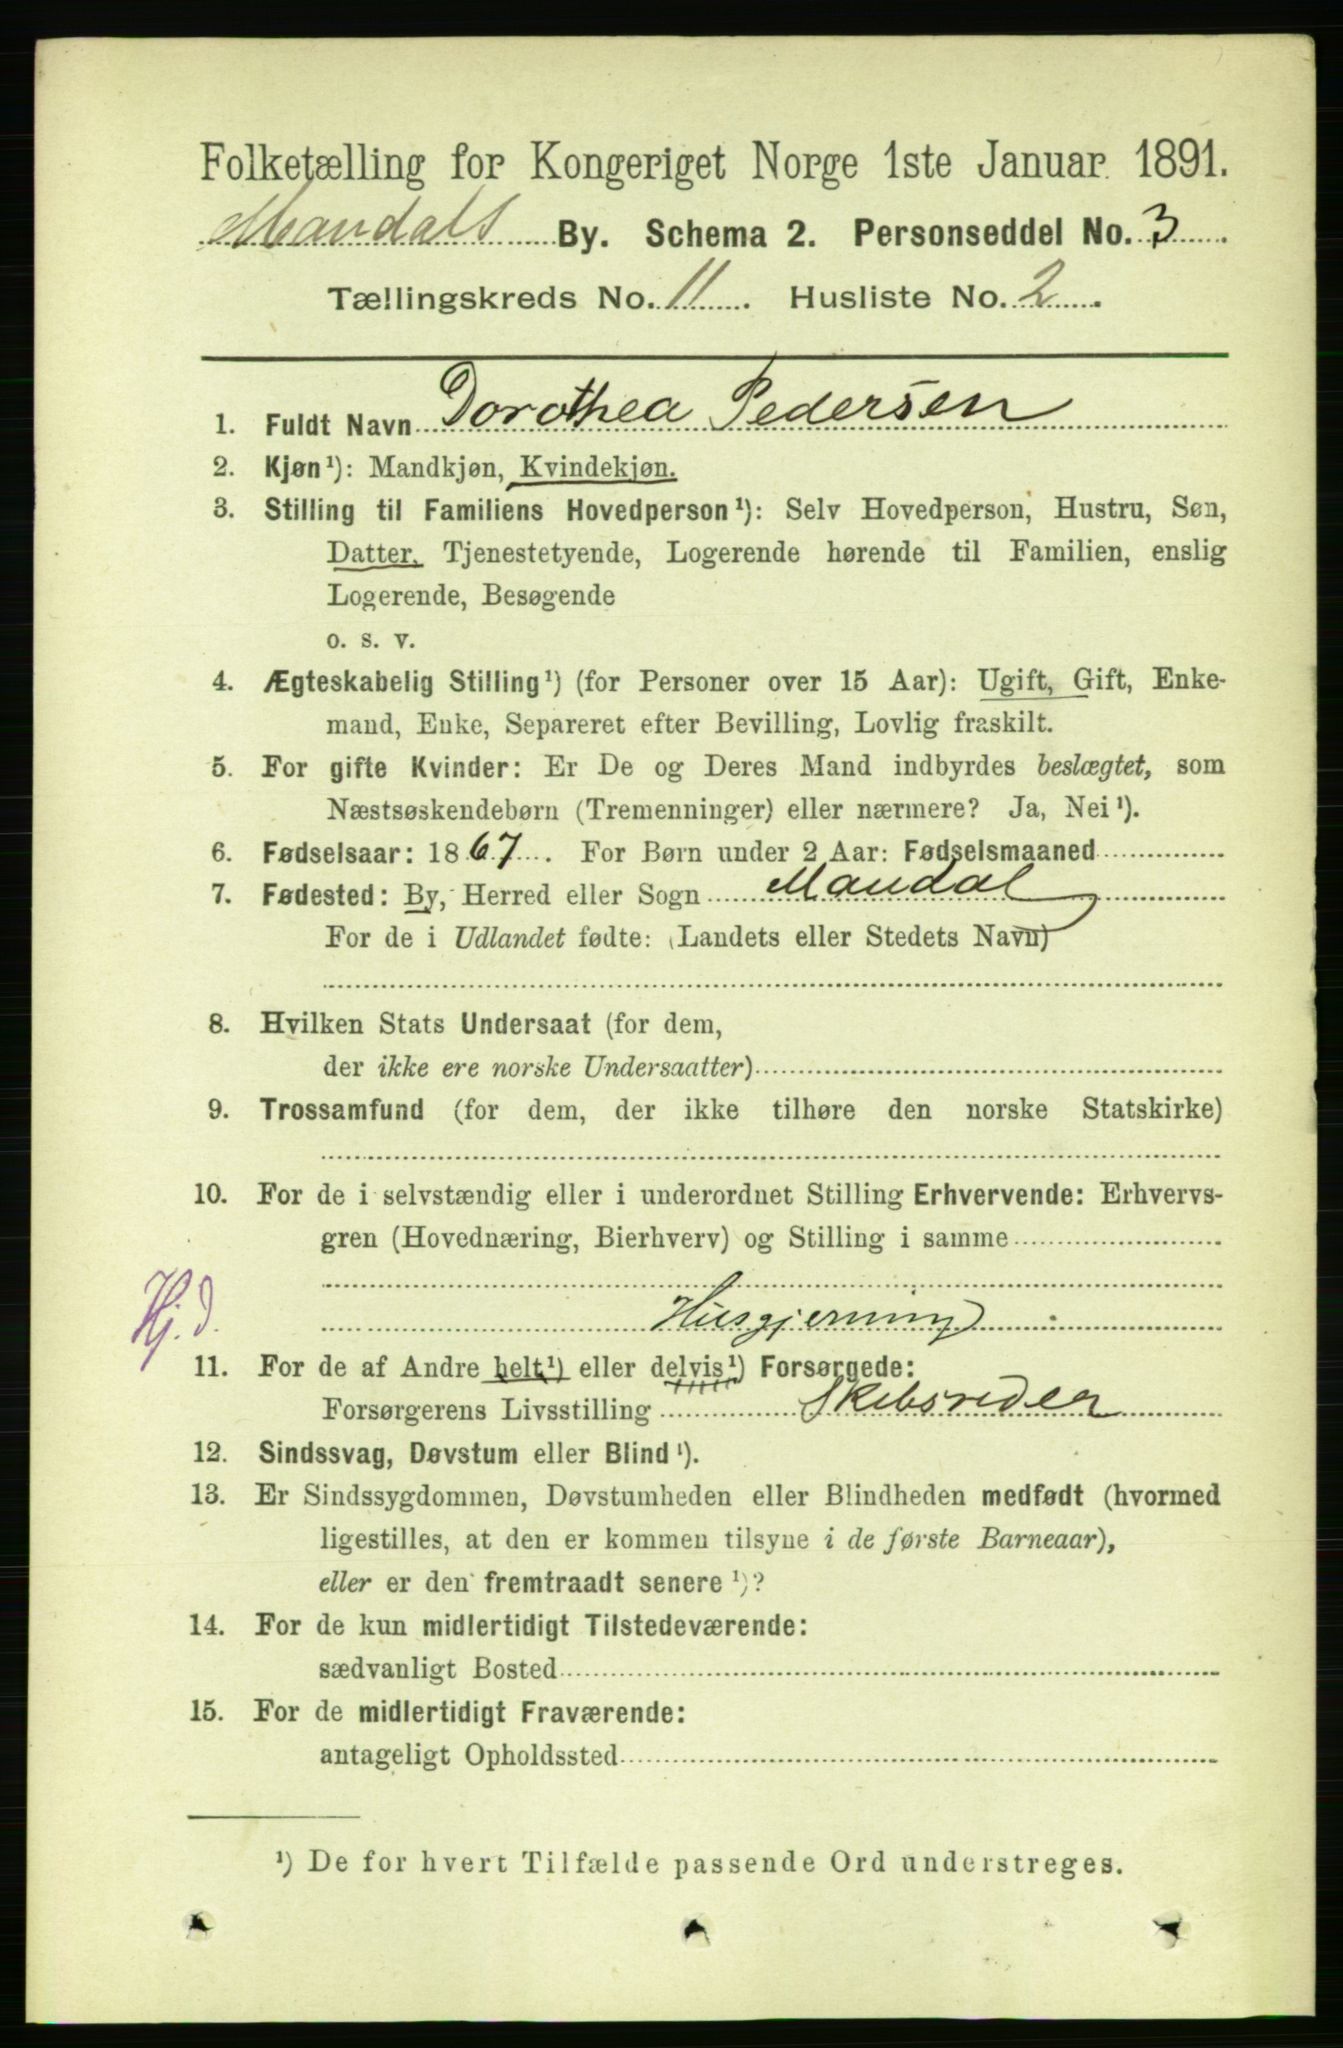 Folketælling for Kongeriget Norge 1ste Januar 1891.
Mandals By. Schema 2. Personseddel No. 3
Tællingskreds No. 11. Husliste No. 2.
1. Fuldt Navn Dorothea Pedersen
2. Kjøn¹): Mandkjøn, Kvindekjøn.
3. Stilling til Familiens Hovedperson¹): Selv Hovedperson, Hustru, Søn,
Datter, Tjenestetyende, Logerende hørende til Familien, enslig
Logerende, Besøgende
o. s. v.
4. Ægteskabelig Stilling¹) (for Personer over 15 Aar): Ugift, Gift, Enke-
mand, Enke, Separeret efter Bevilling, Lovlig fraskilt.
5. For gifte Kvinder: Er De og Deres Mand indbyrdes beslægtet, som
Næstsøskendebørn (Tremenninger) eller nærmere? Ja, Nei¹).
6. Fødselsaar: 1867. For Børn under 2 Aar: Fødselsmaaned
7. Fødested: By, Herred eller Sogn Mandal
For de i Udlandet fødte: (Landets eller Stedets Navn)
8. Hvilken Stats Undersaat (for dem,
der ikke ere norske Undersaatter)
9. Trossamfund (for dem, der ikke tilhøre den norske Statskirke)
10. For de i selvstændig eller i underordnet Stilling Erhvervende: Erhvervs-
gren (Hovednæring, Bierhverv) og Stilling i samme
Hj. d. Husgjerning
11. For de af Andre helt¹) eller delvis¹) Forsørgede:
Forsørgerens Livsstilling Skibsreder
12. Sindssvag, Døvstum eller Blind¹).
13. Er Sindssygdommen, Døvstumheden eller Blindheden medfødt (hvormed
ligestilles, at den er kommen tilsyne i de første Barneaar),
eller er den fremtraadt senere¹)?
14. For de kun midlertidigt Tilstedeværende:
sædvanligt Bosted
15. For de midlertidigt Fraværende:
antageligt Opholdssted
¹) De for hvert Tilfælde passende Ord understreges.